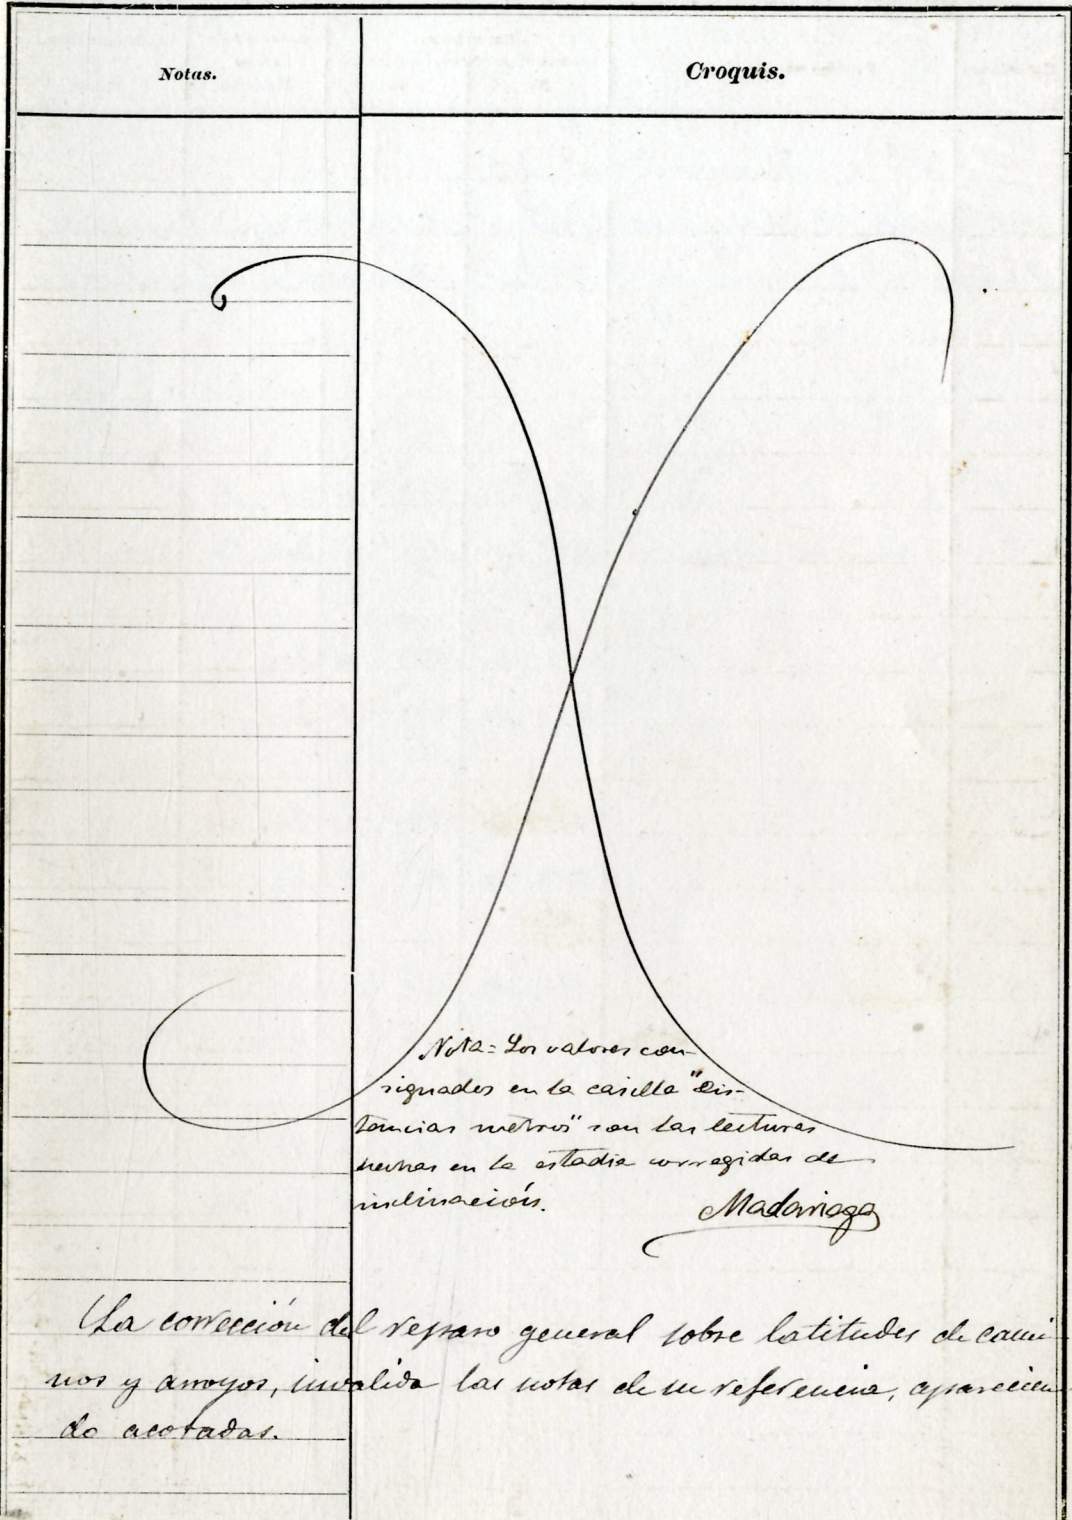 Notas.
Croquis.
Nota= Los valores con-
signados en la casilla "Dis-
tancias metros" son las lecturas
hechas en la estadia corregidas de
inclinación.
Madariaga
La corrección del reparo general sobre latitudes de cami
nos y arroyos, invalida las notas de su referencia, aparecien
do acotadas.